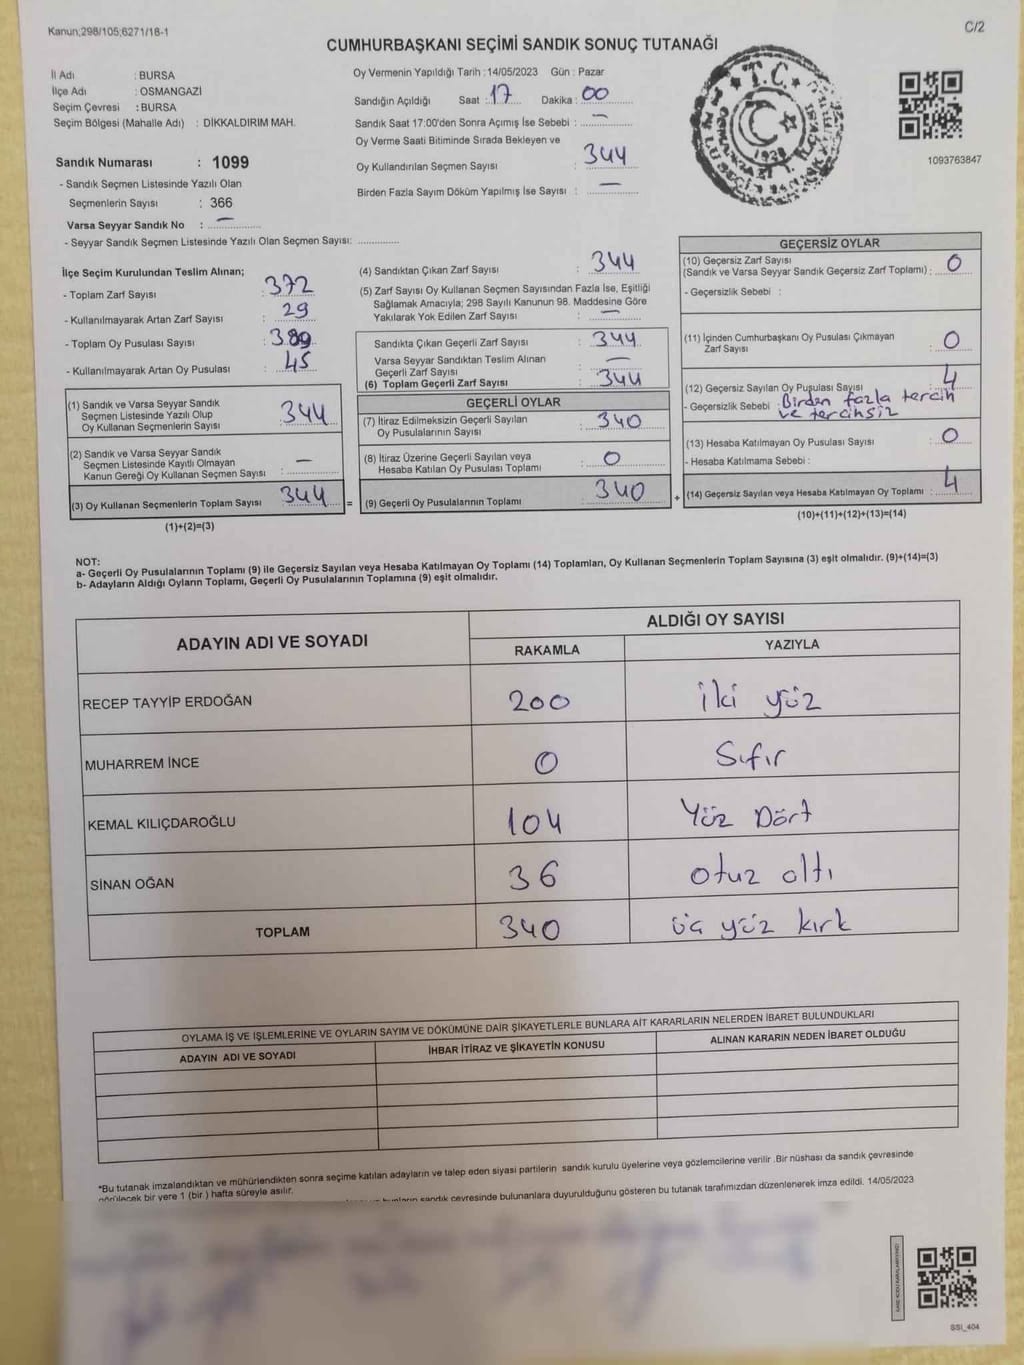 Kanun;298/105;6271/18-1
C/2
CUMHURBAŞKANI SEÇİMİ SANDIK SONUÇ TUTANAĞI
İl Adı : BURSA
İlçe Adı : OSMANGAZİ
Seçim Çevresi : BURSA
Seçim Bölgesi (Mahalle Adı) : DİKKALDIRIM MAH.
Sandık Numarası : 1099
- Sandık Seçmen Listesinde Yazılı Olan
Seçmenlerin Sayısı : 366
Varsa Seyyar Sandık No : —
- Seyyar Sandık Seçmen Listesinde Yazılı Olan Seçmen Sayısı:
Oy Vermenin Yapıldığı Tarih : 14/05/2023 Gün : Pazar
Sandığın Açıldığı Saat : 17 Dakika : 00
Sandık Saat 17:00'den Sonra Açımış İse Sebebi : —
Oy Verme Saati Bitiminde Sırada Bekleyen ve
Oy Kullandırılan Seçmen Sayısı : 344
Birden Fazla Sayım Döküm Yapılmış İse Sayısı : —
T.C.
1093763847
İlçe Seçim Kurulundan Teslim Alınan;
- Toplam Zarf Sayısı : 372
- Kullanılmayarak Artan Zarf Sayısı : 29
- Toplam Oy Pusulası Sayısı : 389
- Kullanılmayarak Artan Oy Pusulası : 45
(1) Sandık ve Varsa Seyyar Sandık
Seçmen Listesinde Yazılı Olup
Oy Kullanan Seçmenlerin Sayısı : 344
(2) Sandık ve Varsa Seyyar Sandık
Seçmen Listesinde Kayıtlı Olmayan
Kanun Gereği Oy Kullanan Seçmen Sayısı : —
(3) Oy Kullanan Seçmenlerin Toplam Sayısı : 344 =
(1)+(2)=(3)
(4) Sandıktan Çıkan Zarf Sayısı : 344
(5) Zarf Sayısı Oy Kullanan Seçmen Sayısından Fazla İse, Eşitliği
Sağlamak Amacıyla; 298 Sayılı Kanunun 98. Maddesine Göre
Yakılarak Yok Edilen Zarf Sayısı : —
Sandıkta Çıkan Geçerli Zarf Sayısı : 344
Varsa Seyyar Sandıktan Teslim Alınan
Geçerli Zarf Sayısı : —
(6) Toplam Geçerli Zarf Sayısı : 344
GEÇERLİ OYLAR
(7) İtiraz Edilmeksizin Geçerli Sayılan
Oy Pusulalarının Sayısı : 340
(8) İtiraz Üzerine Geçerli Sayılan veya
Hesaba Katılan Oy Pusulası Toplamı : 0
(9) Geçerli Oy Pusulalarının Toplamı : 340 +
GEÇERSİZ OYLAR
(10) Geçersiz Zarf Sayısı
(Sandık ve Varsa Seyyar Sandık Geçersiz Zarf Toplamı) : 0
- Geçersizlik Sebebi :
(11) İçinden Cumhurbaşkanı Oy Pusulası Çıkmayan
Zarf Sayısı : 0
(12) Geçersiz Sayılan Oy Pusulası Sayısı : 4
- Geçersizlik Sebebi : Birden fazla tercih
ve tercihsiz
(13) Hesaba Katılmayan Oy Pusulası Sayısı : 0
- Hesaba Katılmama Sebebi :
(14) Geçersiz Sayılan veya Hesaba Katılmayan Oy Toplamı : 4
(10)+(11)+(12)+(13)=(14)
NOT:
a- Geçerli Oy Pusulalarının Toplamı (9) ile Geçersiz Sayılan veya Hesaba Katılmayan Oy Toplamı (14) Toplamları, Oy Kullanan Seçmenlerin Toplam Sayısına (3) eşit olmalıdır. (9)+(14)=(3)
b- Adayların Aldığı Oyların Toplamı, Geçerli Oy Pusulalarının Toplamına (9) eşit olmalıdır.
ADAYIN ADI VE SOYADI ALDIĞI OY SAYISI
RAKAMLA YAZIYLA
RECEP TAYYİP ERDOĞAN 200 iki yüz
MUHARREM İNCE 0 Sıfır
KEMAL KILIÇDAROĞLU 104 Yüz Dört
SİNAN OĞAN 36 otuz altı
TOPLAM 340 üç yüz kırk
OYLAMA İŞ VE İŞLEMLERİNE VE OYLARIN SAYIM VE DÖKÜMÜNE DAİR ŞİKAYETLERLE BUNLARA AİT KARARLARIN NELERDEN İBARET BULUNDUKLARI
ADAYIN ADI VE SOYADI İHBAR İTİRAZ VE ŞİKAYETİN KONUSU ALINAN KARARIN NEDEN İBARET OLDUĞU
*Bu tutanak imzalandıktan ve mühürlendikten sonra seçime katılan adayların ve talep eden siyasi partilerin sandık kurulu üyelerine veya gözlemcilerine verilir .Bir nüshası da sandık çevresinde
görülecek bir yere 1 (bir ) hafta süreyle asılır.
sandık çevresinde bulunanlara duyurulduğunu gösteren bu tutanak tarafımızdan düzenlenerek imza edildi. 14/05/2023
SSI_404